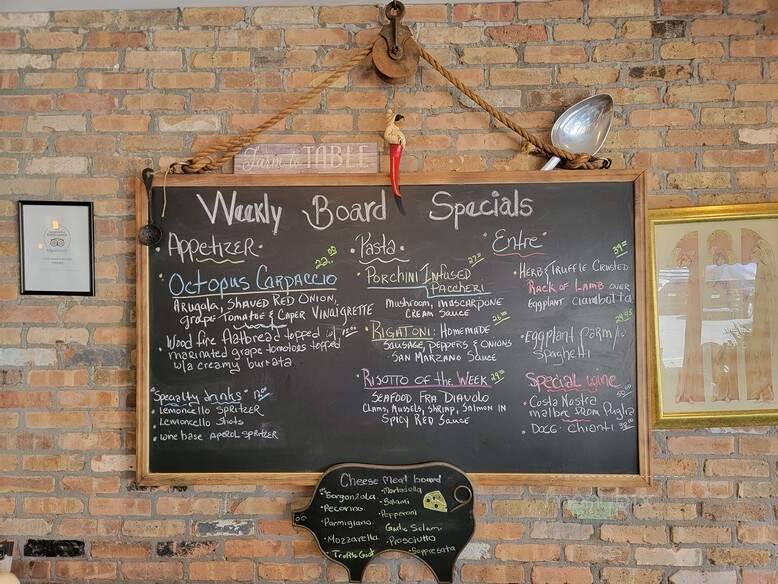 Farm to TABLE
Weekly Board Specials
• Appetizer •
• Octopus Carpaccio 22.00
Arugala, Shaved Red Onion,
grape Tomatoe & Caper Vinaigrette
• Wood fire flatbread topped w/
marinated grape tomatoes topped
w/a creamy burrata
"Specialty drinks"
• Lemoncello Spritzer
• Lemoncello Shots
• wine base Aperol Spritzer
• Pasta •
• Porchini Infused
Paccheri
Mushroom, Mascarpone
Cream Sauce
• Rigatoni: Homemade
Sausage, Peppers & Onions
San Marzano Sauce
• Risotto of the Week 29.00
Seafood Fra Diavolo
Clams, Mussels, Shrimp, Salmon in
Spicy Red Sauce
• Entre •
• Herb & Truffle Crusted
Rack of Lamb over
Eggplant Ciambotta
• Eggplant Parm /w
Spaghetti
Special wine
• Costa Nostra
malbec from Puglia
• DOCG • Chianti
Cheese Meat board
• Gorgonzola
• Pecorino
• Parmigiano
• Mozzarella
• Truffle Goat
• Mortadella
• Salami
• Pepperoni
Garlic Salami
• Prosciutto
• Soppresata